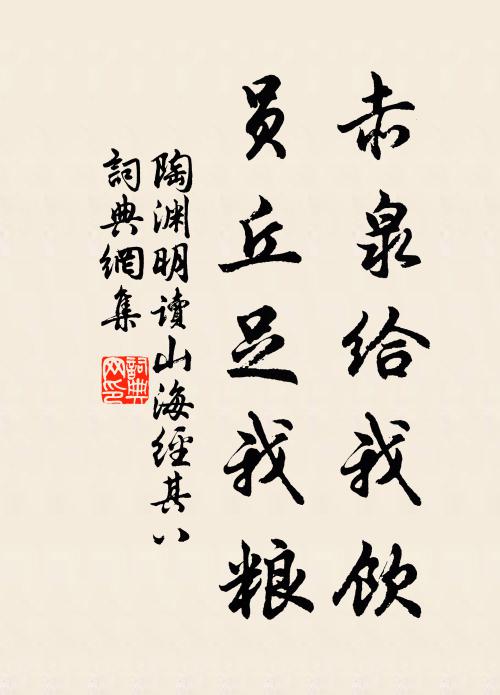 赤泉给我饮
员丘足我粮
陶渊明读山海经其八
詞典網集
詞典网印